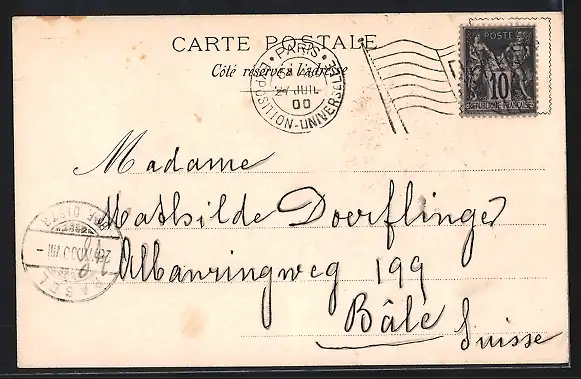 CARTE POSTALE
Côté réservé à l'adresse
PARIS
27 JUIL
00
EXPOSITION-UNIVERSELLE
POSTES
10
REPUBLIQUE FRANÇAISE
Madame
Mathilde Doerflinger
Albanringweg 199
Bâle Suisse
BASEL